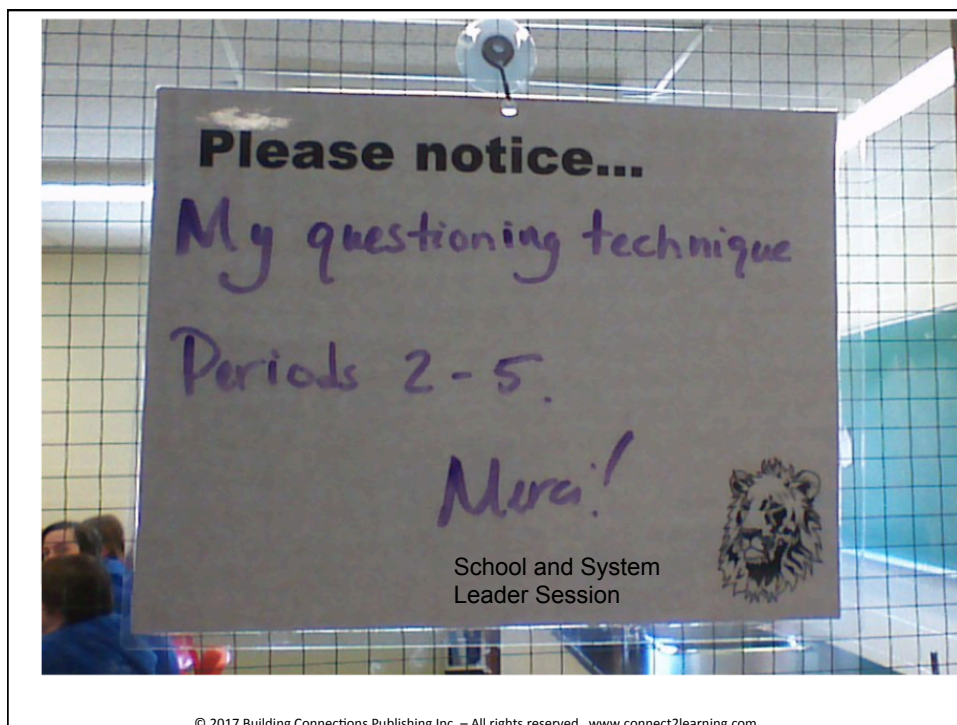 Please notice...
My questioning technique
Periods 2-5.
Merci!
School and System
Leader Session
© 2017 Building Connections Publishing Inc. – All rights reserved. www.connect2learning.com